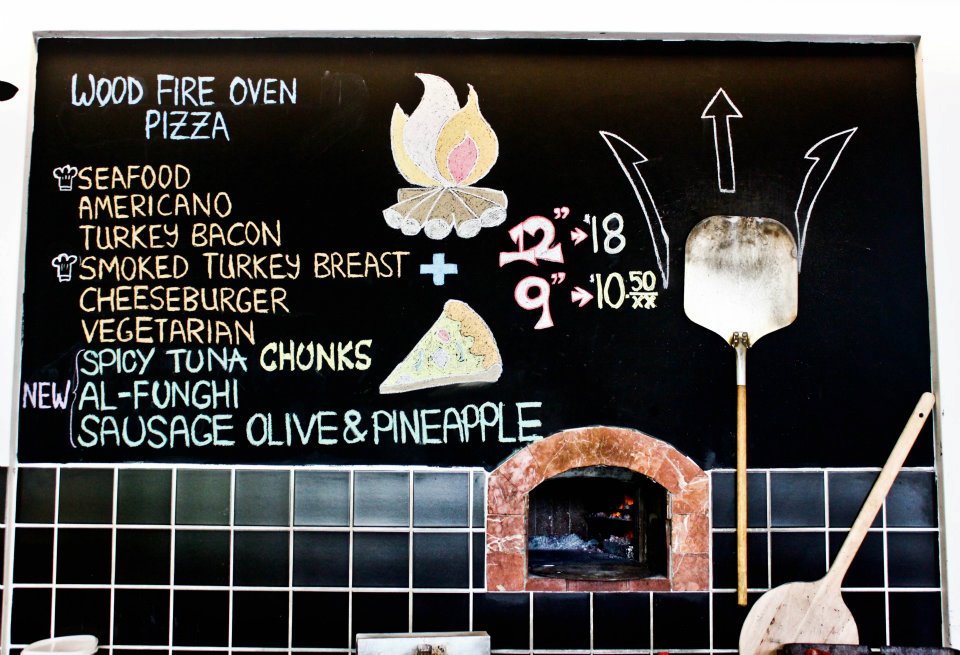 WOOD FIRE OVEN
PIZZA
SEAFOOD
AMERICANO
TURKEY BACON
SMOKED TURKEY BREAST +
CHEESEBURGER
VEGETARIAN
NEW
SPICY TUNA CHUNKS
AL-FUNGHI
SAUSAGE OLIVE & PINEAPPLE
12" $18
9" $10.50 xx